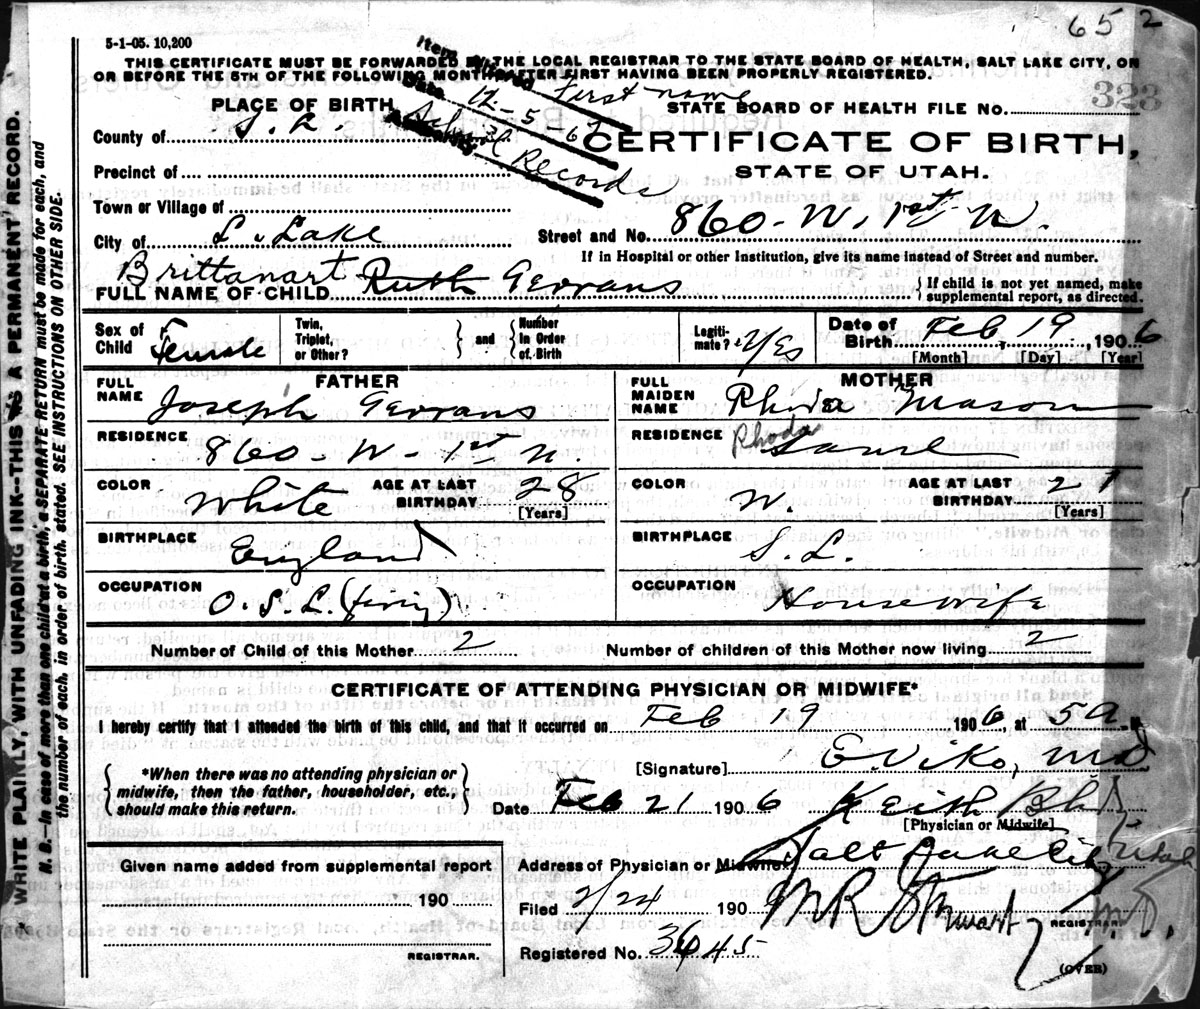 652
5-1-05. 10,200
THIS CERTIFICATE MUST BE FORWARDED BY THE LOCAL REGISTRAR TO THE STATE BOARD OF HEALTH, SALT LAKE CITY, ON
OR BEFORE THE 5TH OF THE FOLLOWING MONTH AFTER FIRST HAVING BEEN PROPERLY REGISTERED.
Item
First name
12-5-67
School Records
323
PLACE OF BIRTH
STATE BOARD OF HEALTH FILE No.
County of S. L.
CERTIFICATE OF BIRTH,
Precinct of
STATE OF UTAH.
Town or Village of
City of S. Lake
Street and No. 860-W. 1st N.
If in Hospital or other Institution, give its name instead of Street and number.
Brittanart
FULL NAME OF CHILD Ruth Gerrans
{If child is not yet named, make
supplemental report, as directed.
Sex of Child Female
Twin, Triplet, or Other? } and { Number In Order of Birth
Legiti-mate? Yes
Date of Birth Feb 19, 1906
[Month] [Day] [Year]
FATHER
FULL NAME Joseph Gerrans
RESIDENCE 860-W-1st N.
COLOR White
AGE AT LAST BIRTHDAY 28 [Years]
BIRTHPLACE England
OCCUPATION O.S.L.
MOTHER
FULL MAIDEN NAME Rhoda Mason
Rhoda
RESIDENCE Same
COLOR W.
AGE AT LAST BIRTHDAY 21 [Years]
BIRTHPLACE S.L.
OCCUPATION Housewife
Number of Child of this Mother 2
Number of children of this Mother now living 2
CERTIFICATE OF ATTENDING PHYSICIAN OR MIDWIFE*
I hereby certify that I attended the birth of this child, and that it occurred on Feb 19 1906, at 5 a.M
[Signature] E. Viko, MD
{*When there was no attending physician or
midwife, then the father, householder, etc.,
should make this return.}
Date Feb 21 1906
Keith Bld
[Physician or Midwife]
Address of Physician or Midwife Salt Lake City Utah
Filed 2/24 190
M R Stewart M.D.
REGISTRAR
Registered No. 3645
(OVER)
Given name added from supplemental report
190
REGISTRAR.
* WRITE PLAINLY, WITH UNFADING INK--THIS IS A PERMANENT RECORD.
N. B.--In case of more than one child at a birth, a SEPARATE RETURN must be made for each, and
the number of each, in order of birth, stated. SEE INSTRUCTIONS ON OTHER SIDE.